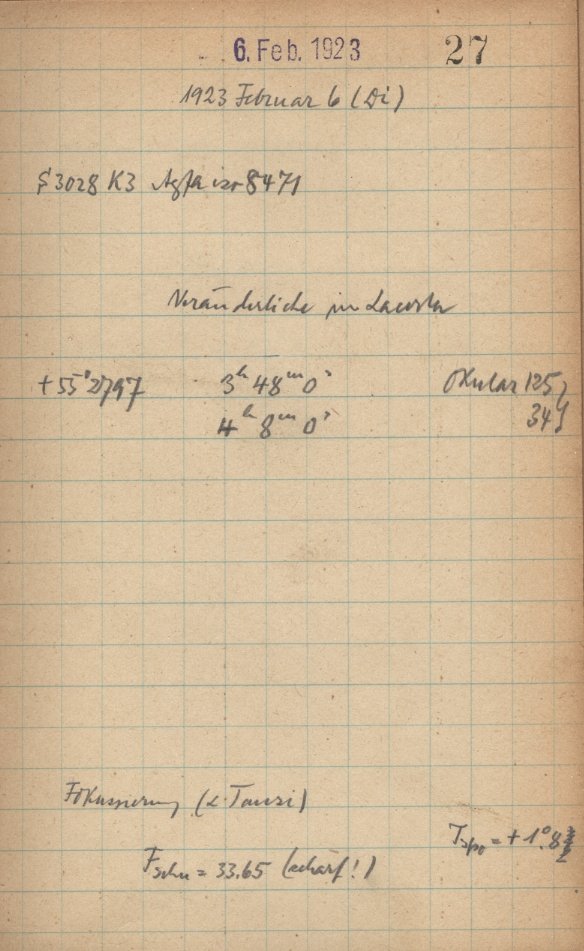 6. Feb. 1923 27
1923 Februar 6 (Di)
S 3028 K3 Agfa iso 8471
Veränderliche in Lacerta
+55°2797 3ʰ 48ᵐ 0ˢ Okular 125
4ʰ 8ᵐ 0ˢ 34
Fokussierung (α Tauri)
T = +1°.8
F = 33.65 (scharf!)